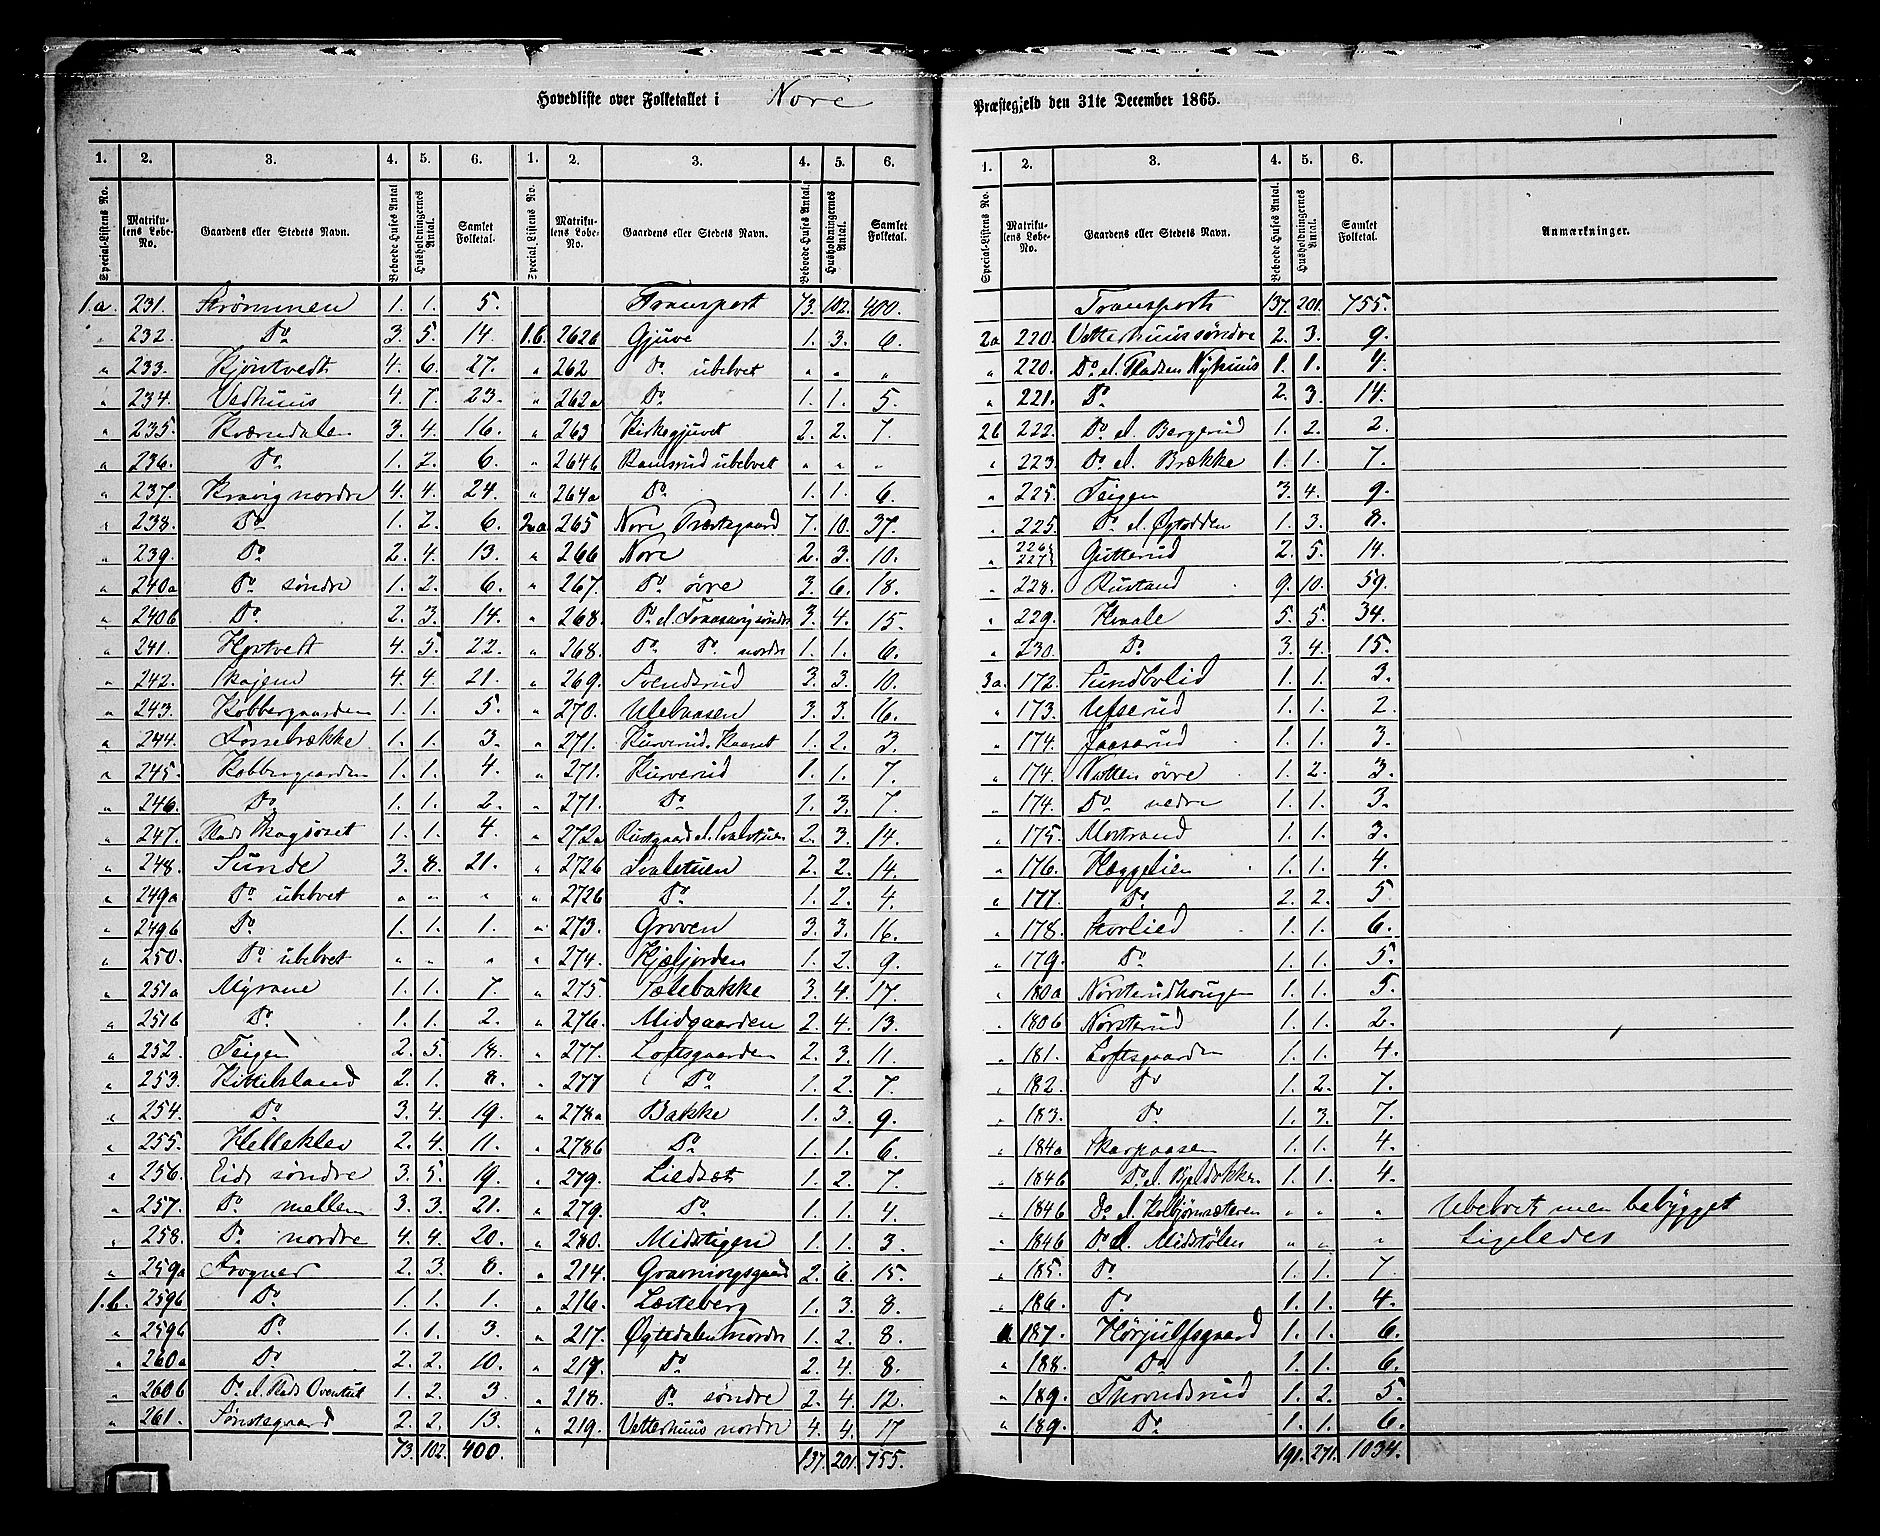 Hovedliste over Folketallet i Nore Præstegjeld den 31te December 1865.
1. 2. 3. 4. 5. 6.
Special-Listens No. Matrikulens Løbe-No. Gaardens eller Stedets Navn. Beboede Huses Antal Husholdningernes Antal. Samlet Folketal.
1.a. 231. Strömmen 1. 1. 5.
" 232. Do 3. 5. 14.
" 233. Kjöntvedt 4. 6. 27.
" 234. Vedhuus 4. 7. 23.
" 235. Kværndalen 3. 4. 16.
" 236. Do 1. 2. 6.
" 237. Kravig nordre 4. 4. 24.
" 238. Do 1. 2. 6.
" 239. Do 2. 4. 13.
" 240a Do søndre 1. 2. 6.
" 240b Do 2. 3. 14.
" 241. Hortvedt 4. 5. 22.
" 242. Skajem 4. 4. 21.
" 243. Kobbergaarden 1. 1. 5.
" 244. Fossebrække 1. 1. 3.
" 245. Kobbergaarden 1. 1. 4.
" 246. Do 1. 1. 2.
" 247. Plads Skagsöset 1. 1. 4.
" 248. Sunde 3. 8. 21.
" 249a Do ubebvet " " "
" 249b Do 1. 1. 1.
" 250. Do ubebvet " " "
" 251a Myrane 1. 1. 7.
" 251b Do 1. 1. 2.
" 252. Teigen 2. 5. 18.
" 253. Kittelsland 2. 1. 8.
" 254. Do 3. 4. 19.
" 255. Helleklev 2. 4. 11.
" 256. Eids søndre 3. 5. 19.
" 257. Do mellem 3. 3. 21.
" 258. Do nordre 4. 4. 20.
" 259a Frogner 2. 3. 8.
1.b. 259b Do 1. 1. 1.
" 259b Do 1. 1. 3.
" 260a Do 2. 2. 10.
" 260b Do el. Plads 1. 2. 3.
" 261. Sønstegaard 2. 2. 13.
73. 102. 400.
1. 2. 3. 4. 5. 6.
Special-Listens No. Matrikulens Løbe-No. Gaardens eller Stedets Navn. Beboede Huses Antal. Husholdningernes Antal. Samlet Folketal.
Transport 73. 102. 400.
1.b. 262b Gjuve 1. 3. 6.
" 262 Do ubebvet " " "
" 262a Do 1. 1. 5.
" 263 Kirkegjuvet 2. 2. 7.
" 264b Ramsrud ubebvet " " "
" 264a Do 1. 1. 6.
2.a. 265 Nore Præstegaard 7. 10. 37.
" 266 Nore 2. 3. 10.
" 267. Do övre 3. 6. 18.
" 268. Do el. søndre 3. 4. 15.
" 268. Do Do nordre 1. 1. 6.
" 269. Svendsrud 3. 3. 10.
" 270. Ulevaasen 3. 3. 16.
" 271. Kurverud 1. 2. 3.
" 271. Kurverud 1. 1. 7.
" 271. Do 1. 3. 7.
" 272a Rustgaard el. Svaletuen 2. 3. 14.
" 272b Svaletuen 2. 2. 14.
" 272b Do 1. 2. 4.
" 273. Groven 3. 3. 16.
" 274. Kjæljorden 1. 2. 9.
" 275. Tælebakke 3. 4. 17.
" 276. Midgaarden 2. 4. 13.
" 277. Loftsgaarden 2. 3. 11.
" 277 Do 1. 2. 7.
" 278a Bakke 1. 3. 9.
" 278b Do 1. 1. 6.
" 279. Liedsæt 1. 2. 7.
" 279. Do 1. 1. 4.
" 280. Midstigen 1. 1. 3.
" 214. Gravningsgaard 2. 6. 15.
" 216. Lærteberg 1. 3. 8.
" 217. Øgtedalen nordre 1. 2. 8.
" 217. Do 2. 4. 8.
" 218. Do søndre 2. 4. 12.
" 219. Vetterhuus nordre 4. 4. 17
137. 201. 755.
1. 2. 3. 4. 5. 6.
Special-Listens No. Matrikulens Løbe-No. Gaardens eller Stedets Navn. Beboede Huses Antal. Husholdningernes Antal. Samlet Folketal. Anmærkninger.
Transport 137. 201. 755.
2a 220. Vetterhuus søndre 2. 3. 9.
" 220. Do el. Pladsen Nyhuus 1. 1. 4.
" 221. Do 2. 3. 14.
2b 222. Do el. Bergerud 1. 2. 2.
" 223. Do el. Brække 1. 1. 7.
" 225. Teigen 3. 4. 9.
" 225. Do el. Øgtedden 1. 3. 8.
" 226 227 Gutterud 2. 5. 14.
" 228. Rustand 9. 10. 59.
" 229. Kvale 5. 5. 34.
" 230. Do 3. 4. 15.
3a. 172. Sundbolid 1. 1. 3.
" 173. Ufserud 1. 1. 2.
" 174. Jaasarud 1. 1. 3.
" 174. Natten övre 1. 2. 3.
" 174. Do nedre 1. 1. 3.
" 175. Mostrand 1. 1. 3.
" 176. Hæggelien 1. 1. 4.
" 177. Do 2. 2. 5
" 178. Storlied 1. 1. 6.
" 179. Do 1. 1. 5.
" 180a Nørsterudhougen 1. 1. 5.
" 180b Nørsterud 1. 1. 2.
" 181. Loftsgaarden 1. 1. 4.
" 182. Do 1. 2. 7.
" 183. Do 1. 3. 7.
" 184a Skarpaasen 1. 1. 4.
" 184b Do el. 1. 1. 4.
" 184b Do el. Kolbjørnsæteren " " " Ubebvet men bebygget
" 184b Do el. Midstölen " " " Ligeledes
" 185. Do 1. 1. 7.
" 186. Do 1. 1. 4.
" 187. Hörjulfsgaard 1. 1. 6.
" 188. Do 1. 1. 6.
" 189. Thorudsrud 1. 2. 5.
" 189. Do 1. 1. 6.
191. 271. 1034.